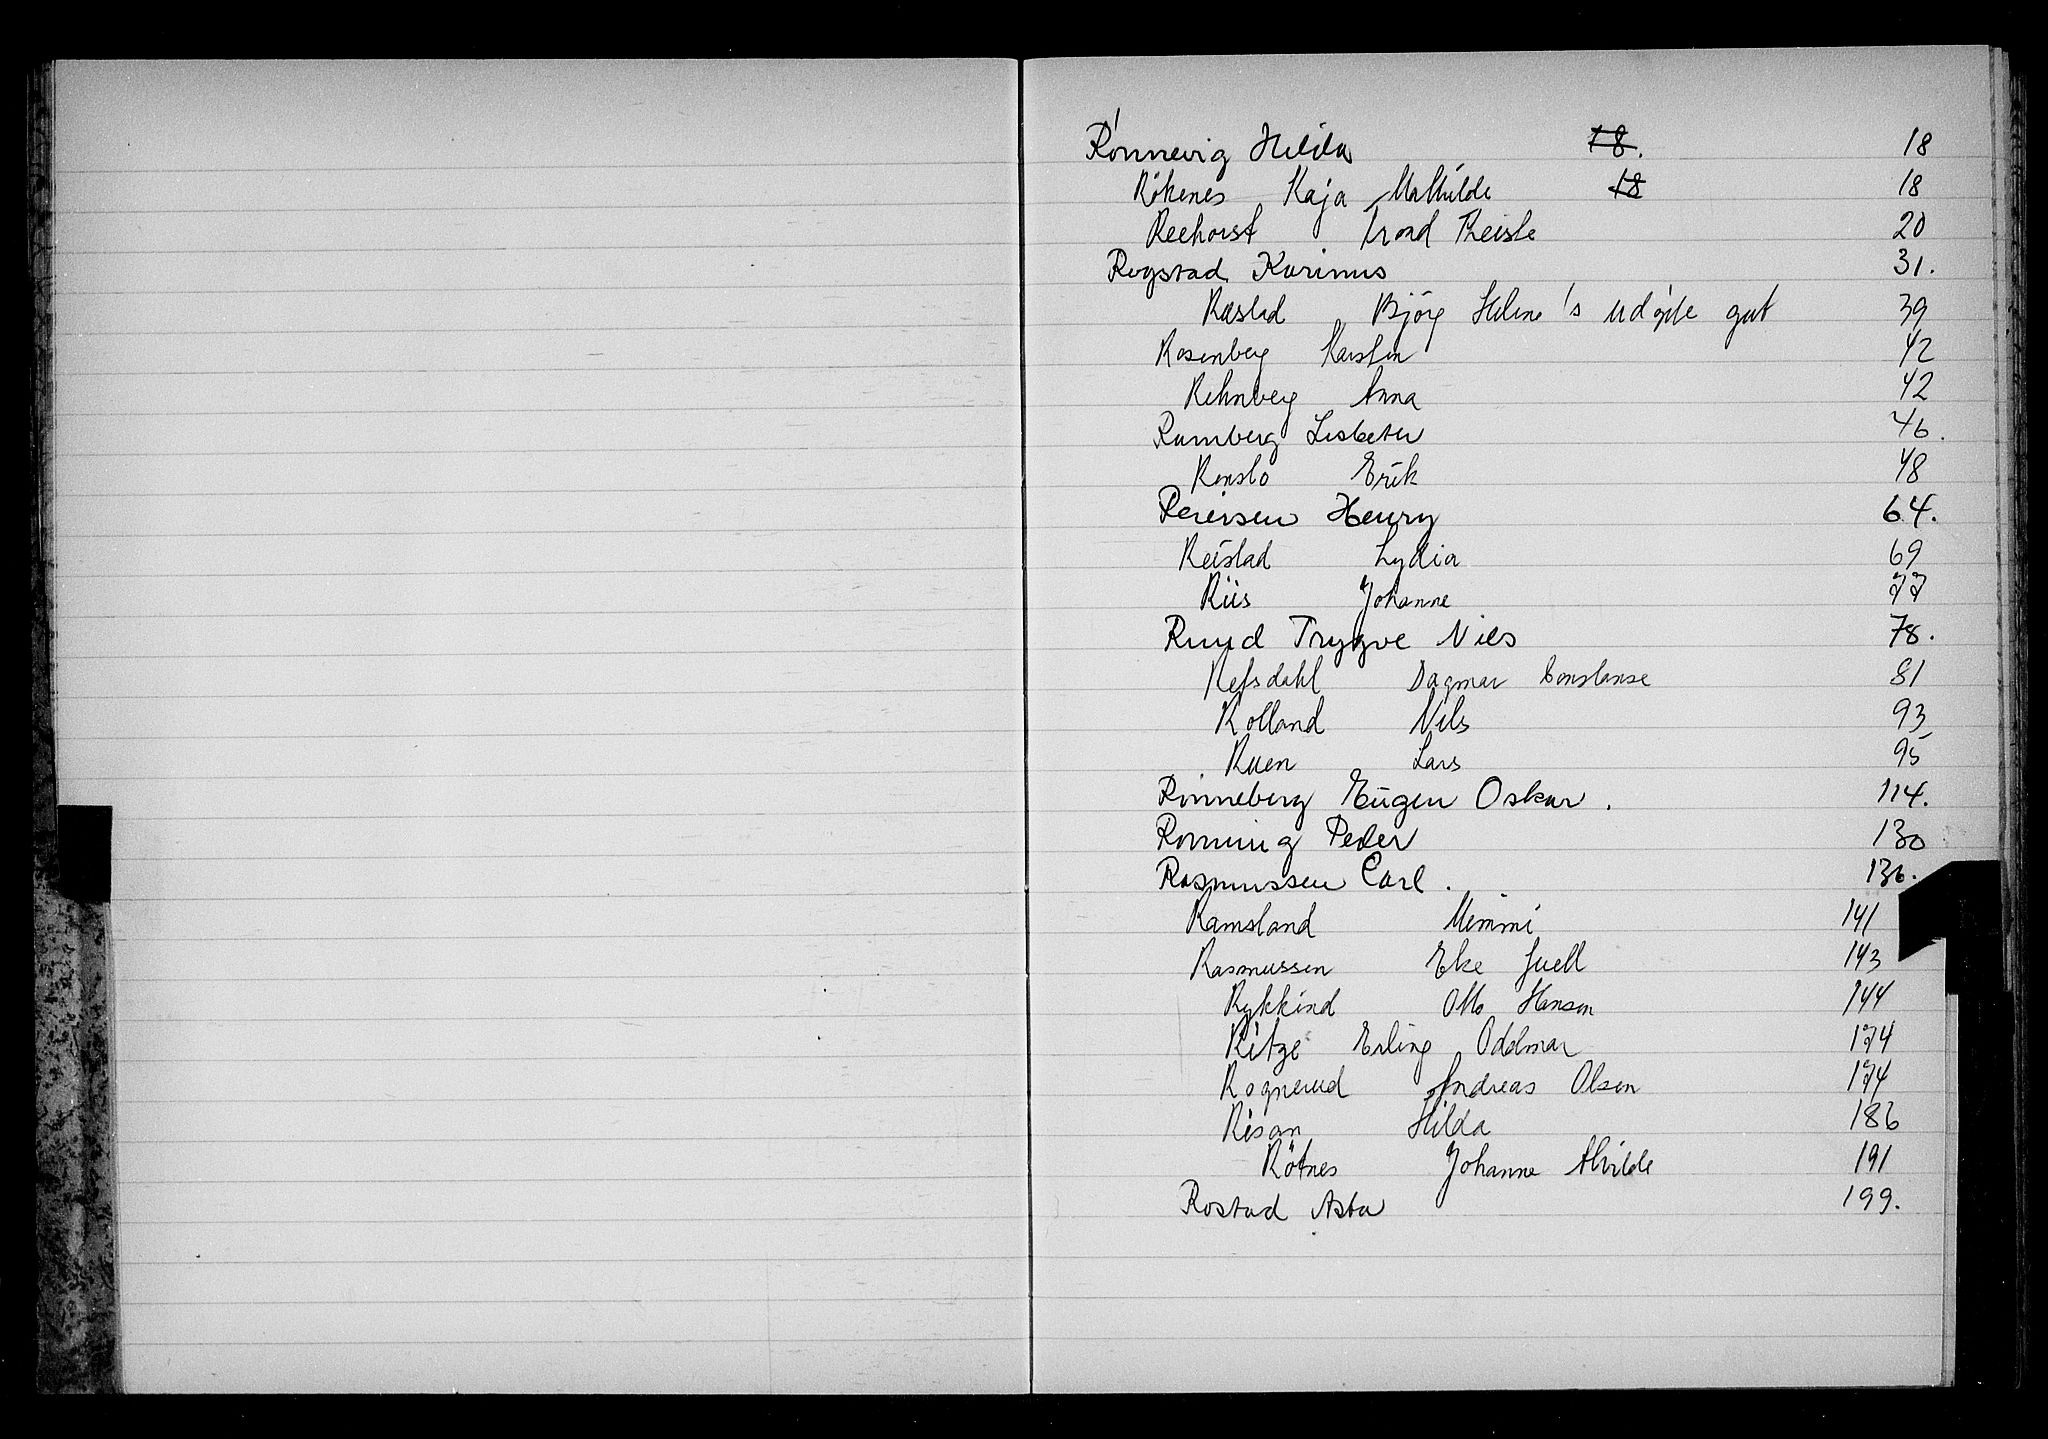 Rönnevig Hilda 18. 18
Rökenes Kaja Mathilde 18 18
Reehorst Trond 20
Rogstad Karinus 31.
Rustad Björg Helene's udøbte gut 39
Rosenberg Karsten 42
Rehnberg Anna 42
Ramberg Lisbeter 46.
Renslo Erik 48
Henry 64.
Reistad Lydia 69
Riis Johanne 77
Ruud Trygve Nils 78.
Refsdahl Dagmar Constanse 81
Rolland Nils 93
Ruen Lars 95
Rönneberg Eugen Oskar. 114.
Rönning Peder 130
Rasmussen Carl. 136.
Ramsland Mimmi 141
Rasmussen Juell 143
Rykkind Otto Hansen 144
Ritze Erling Oddmar 174
Rognerud Andreas Olsen 174
Risan Hilda 186
Rötnes Johanne Alvilde 191
Rostad Asta 199.